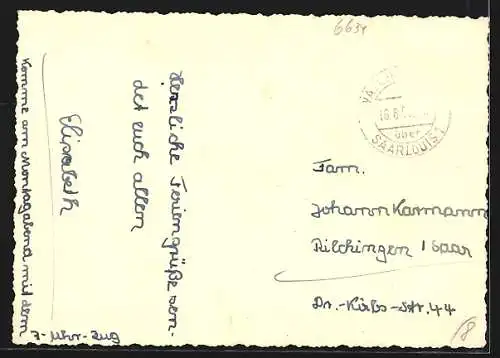 6634
Herzliche Feriengrüße sen-
det euch allen
Elisabeth
Komme am Montagabend mit dem
7-Uhr-Zug
16.6.
über
SAARLOUIS 1
Fam.
Johann Karmann
Rilchingen / Saar
Dr.-Kirbs-Str. 44
18